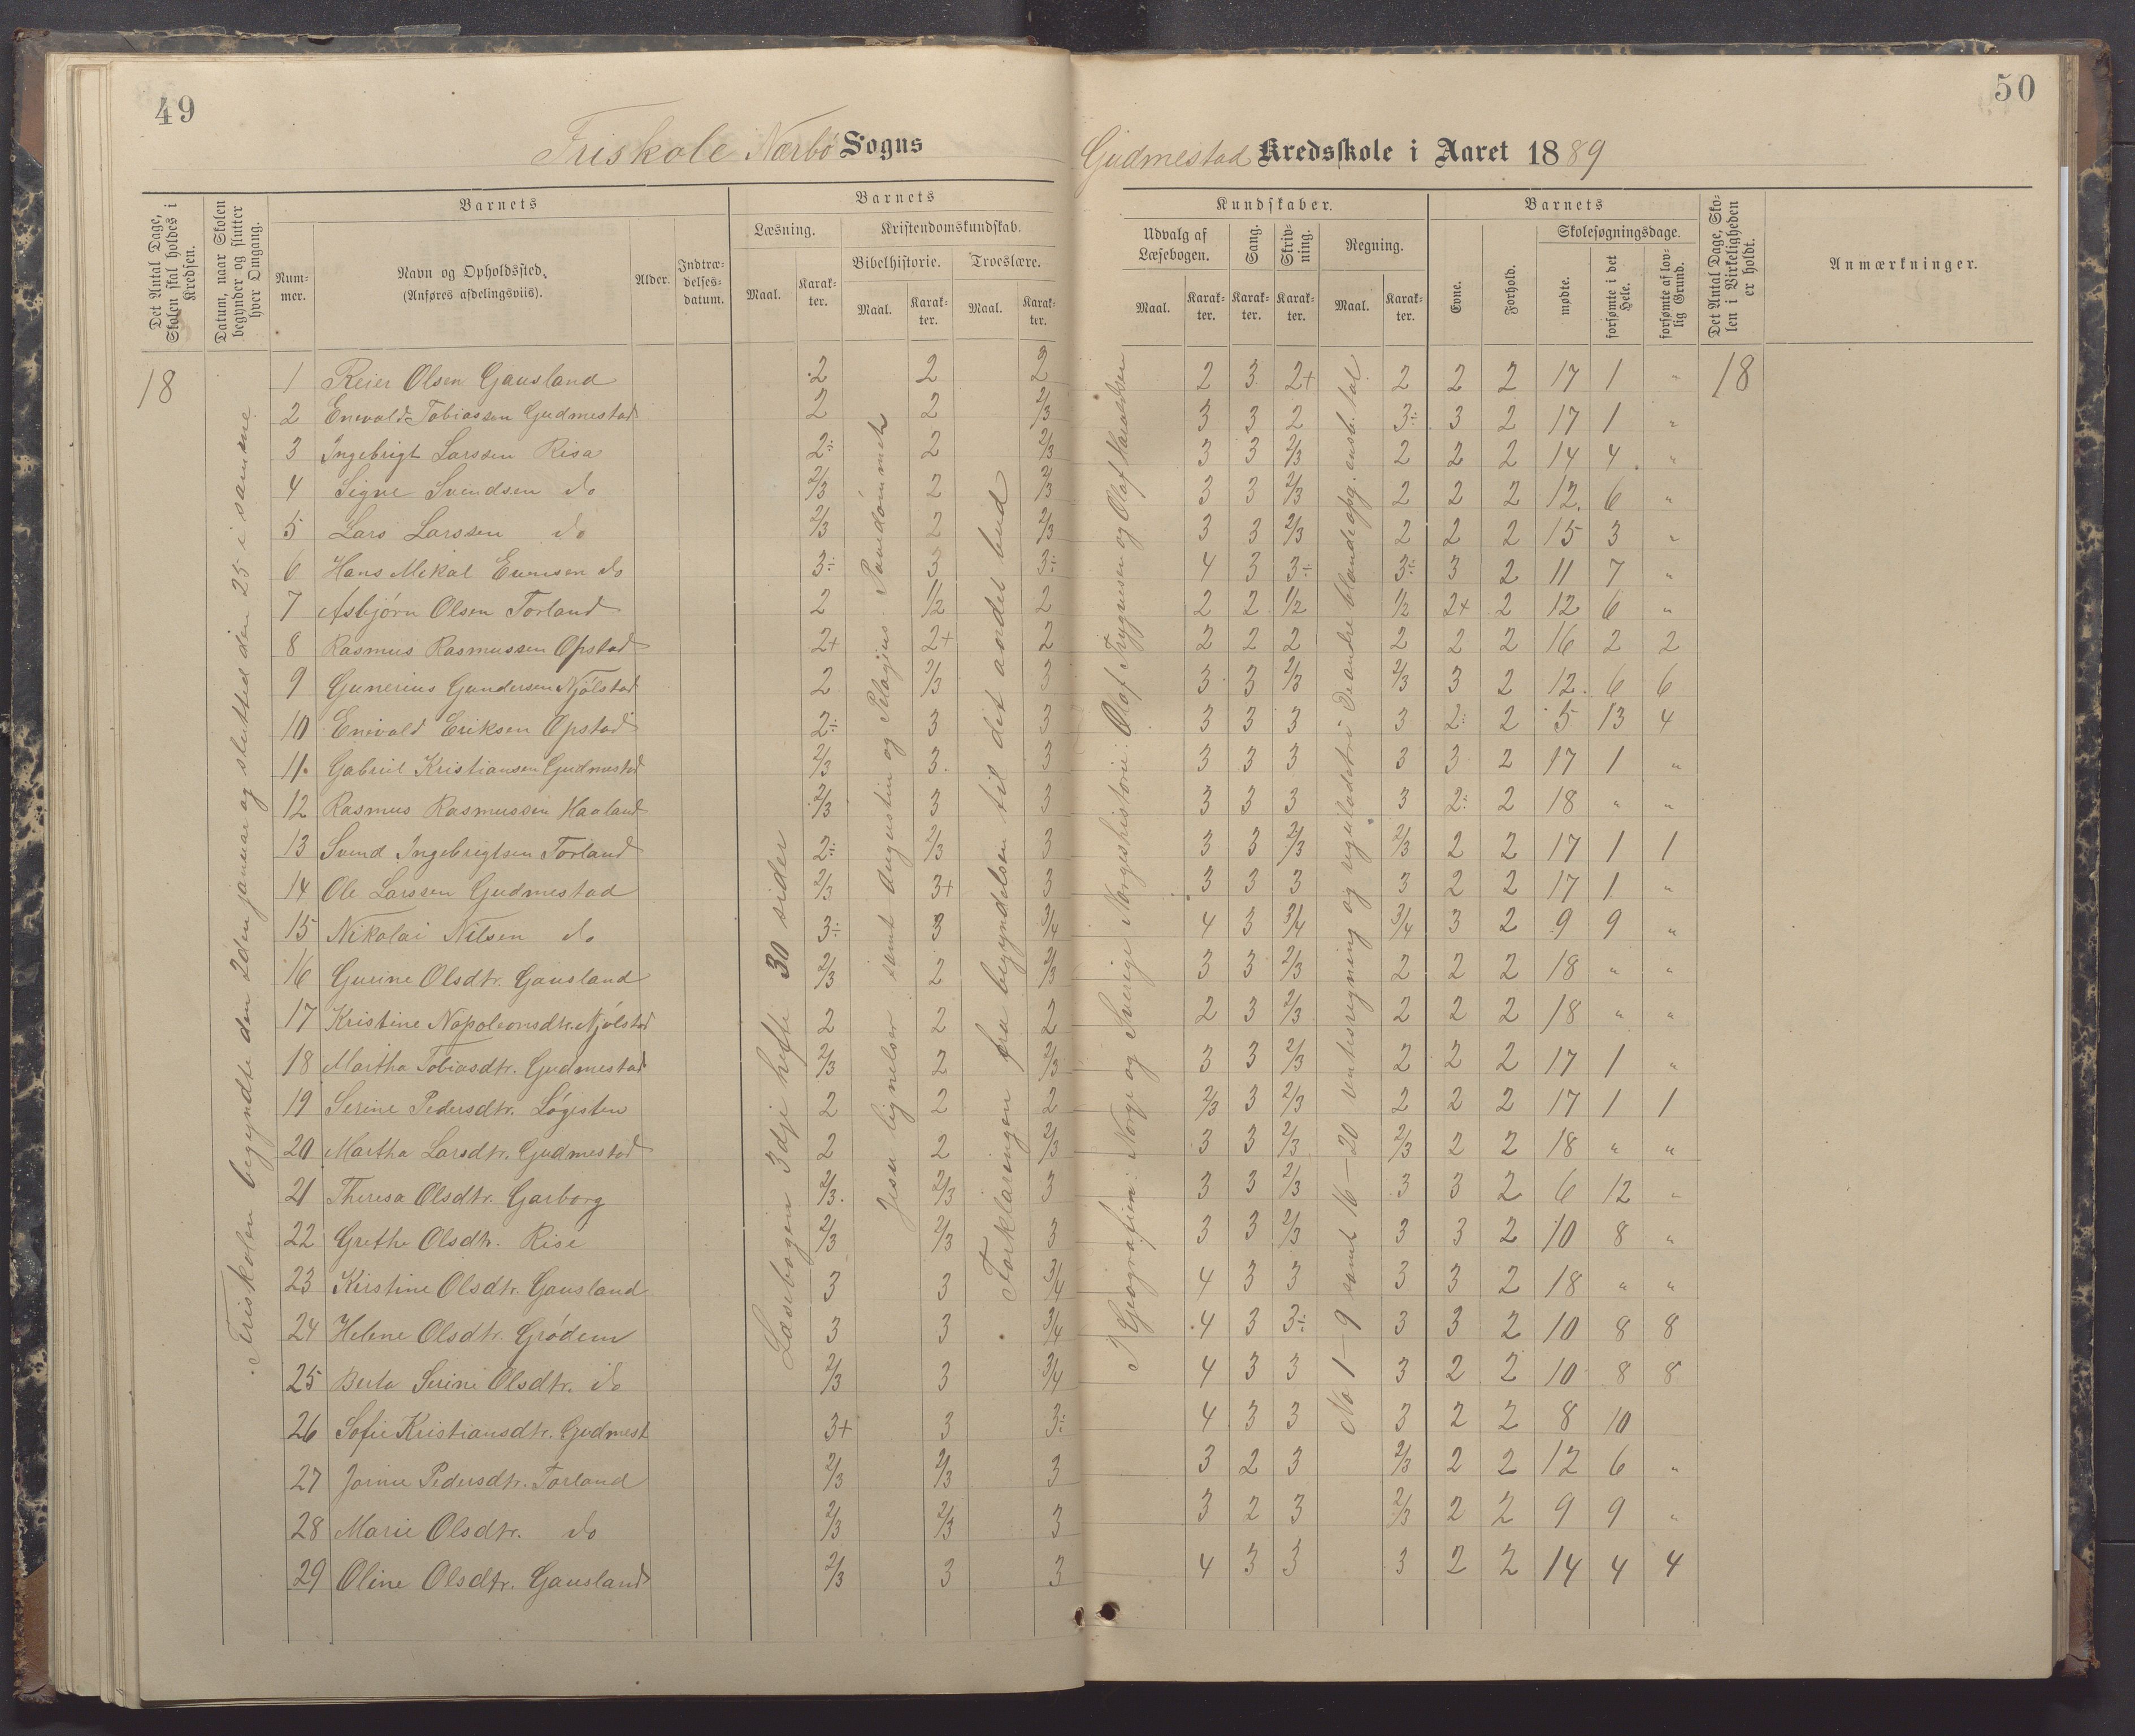 49
50
Friskole Nærbö Sogns
Gudmestad Kredsskole i Aaret 1889
Det Antal Dage, Skolen skal holdes i Kredsen.
Datum, naar Skolen begynder og slutter hver Omgang.
Barnets
Num-mer.
Navn og Opholdssted.
(Anføres afdelingsviis).
Alder.
Indtræ-delses-datum.
Barnets
Læsning.
Kristendomskundskab.
Bibelhistorie.
Troeslære.
Maal.
Karak-ter.
Maal.
Karak-ter.
Maal.
Karak-ter.
Kundskaber.
Udvalg af Læsebogen.
Sang.
Skriv-ning.
Regning.
Maal.
Karak-ter.
Karak-ter.
Karak-ter.
Maal.
Karak-ter.
Barnets
Evne.
Forhold.
Skolesøgningsdage.
mødte.
forsømte i det Hele.
forsømte af lov-lig Grund.
Det Antal Dage, Sko-len i Virkeligheden er holdt.
Anmærkninger.
18
Friskolen begyndte den 2den januar og slutted den 25 i samme
Læsebogen 3dje hefte 30 sider
Jesu lignelser samt Augustin og Pelagius
Forklaringen fra begyndelsen til det andet bud
I Geografien: Norge og Sverige Norgeshistorie: Olaf Trygvesen og Olaf Haraldsen
No 1-9 samt 16-20
1 Reier Olsen Gausland 2 2 2 2 3 2+ 2 2 2 17 1 " 18
2 Enevald Tobiassen Gudmestad 2 2 2/3 3 3 2 3÷ 3 2 17 1 "
3 Ingebrigt Larssen Risa 2÷ 2 2/3 3 3 2/3 2 2 2 14 4 "
4 Signe Svendsen do 2/3 2 2/3 3 3 2/3 2 2 2 12 6 "
5 Lars Larssen do 2/3 2 2/3 3 3 2/3 2 2 2 15 3 "
6 Hans Mikal Evensen do 3÷ 3 3÷ 4 3 3÷ 3÷ 3 2 11 7 "
7 Asbjörn Olsen Torland 2 1/2 2 2 2 1/2 1/2 2+ 2 12 6 "
8 Rasmus Rasmussen Opstad 2+ 2+ 2 2 2 2 2 2 2 16 2 2
9 Gunerius Gundersen Njölstad 2 2/3 3 3 3 2/3 2/3 3 2 12 6 6
10 Enevald Eriksen Opstad 2÷ 3 3 3 3 3 3 2÷ 2 5 13 4
11 Gabriel Kristiansen Gudmestad 2/3 3 3 3 3 3 3 3 2 17 1 "
12 Rasmus Rasmussen Haaland 2/3 3 3 3 3 3 3 2÷ 2 18 " "
13 Svend Ingebrigtsen Torland 2÷ 2/3 3 3 3 2/3 2/3 2 2 17 1 1
14 Ole Larssen Gudmestad 2/3 3+ 3 3 3 3 3 2 2 17 1 "
15 Nikolai Nilsen do 3÷ 3 3/4 4 3 3/4 3/4 3 2 9 9 "
16 Gurine Olsdtr. Gausland 2/3 2 2/3 3 3 2/3 2 2 2 18 " "
17 Kristine Napoleonsdtr. Njölstad 2 2 2 2 3 2/3 2 2 2 18 " "
18 Martha Tobiasdtr. Gudmestad 2/3 2 2/3 3 3 2/3 2 2 2 17 1 "
19 Serine Pedersdtr. Lögesten 2 2 2 2/3 3 2/3 2 2 2 17 1 1
20 Martha Larsdtr. Gudmestad 2 2 2/3 3 3 2/3 2/3 2 2 18 " "
21 Theresa Olsdtr. Garborg 2/3 2/3 3 3 3 2/3 3 3 2 6 12 "
22 Grethe Olsdtr. Rise 2/3 2/3 3 3 3 2/3 3 3 2 10 8 "
23 Kirstine Olsdtr. Gausland 3 3 3/4 4 3 3 3 3 2 18 " "
24 Helene Olsdtr. Grödem 3 3 3/4 4 3 3÷ 3 3 2 10 8 8
25 Berta Serine Olsdtr. do 2/3 3 3/4 4 3 3 3 2 2 10 8 8
26 Sofie Kristiansdtr. Gudmest 3+ 3 3÷ 4 3 3 3 2 2 8 10
27 Jorine Pedersdtr. Torland 2/3 2/3 3 3 2 3 2/3 2 2 12 6 "
28 Marie Olsdtr. do 2/3 2/3 3 3 2 3 2/3 2 2 9 9 "
29 Oline Olsdtr. Gausland 2/3 3 3 4 3 3 3 2 2 14 4 4